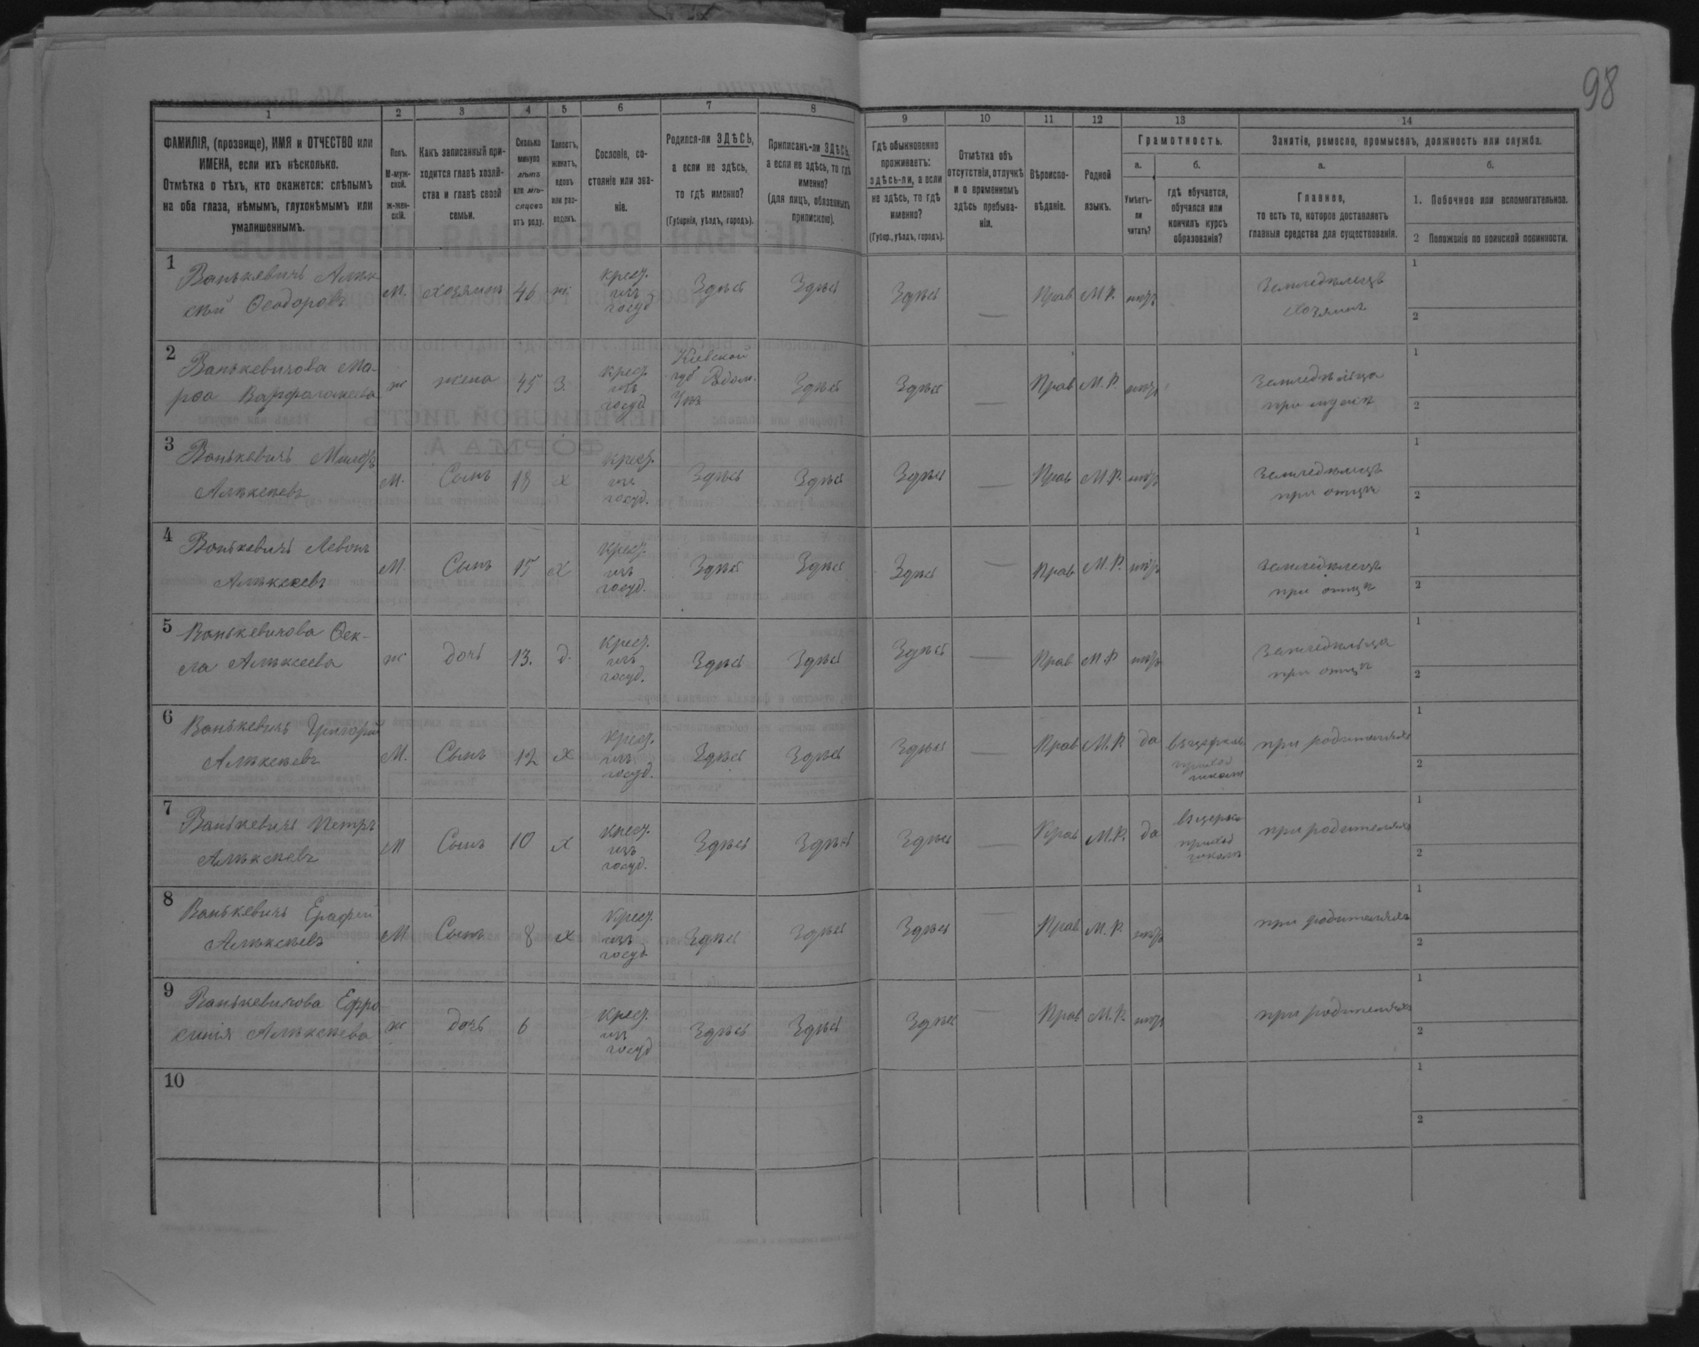 98
1 2 3 4 5 6 7 8 9 10 11 12 13 14
ФАМИЛІЯ, (прозвище), ИМЯ и ОТЧЕСТВО или
ИМЕНА, если ихъ нѣсколько.
Отмѣтка о тѣхъ, кто окажется: слѣпымъ
на оба глаза, нѣмымъ, глухонѣмымъ или
умалишеннымъ.
Полъ.
М-муж-
ской.
Ж-жен-
скій.
Какъ записанный при-
ходится главѣ хозяй-
ства и главѣ своей
семьи.
Сколько
минуло
лѣтъ
или мѣ-
сяцевъ
отъ роду.
Холостъ,
женатъ,
вдовъ
или раз-
веденъ.
Сословіе, со-
стояніе или зва-
ніе.
Родился-ли ЗДѢСЬ,
а если не здѣсь,
то гдѣ именно?
(Губернія, уѣздъ, городъ).
Приписанъ-ли ЗДѢСЬ,
а если не здѣсь, то гдѣ
именно?
(для лицъ, обязанныхъ
припискою).
Гдѣ обыкновенно
проживаетъ:
здѣсь-ли, а если
не здѣсь, то гдѣ
именно?
(Губер., уѣздъ, городъ).
Отмѣтка объ
отсутствіи, отлучкѣ
и о временномъ
здѣсь пребыва-
ніи.
Вѣроиспо-
вѣданіе.
Родной
языкъ.
Грамотность.
а.
Умѣетъ-
ли
читать?
б.
гдѣ обучается,
обучался или
кончилъ курсъ
образованія?
Занятіе, ремесло, промыселъ, должность или служба.
а.
Главное,
то есть то, которое доставляетъ
главныя средства для существованія.
б.
1. Побочное или вспомогательное.
2 Положеніе по воинской повинности.
1
Ванькевичъ Алек-
сѣй Ѳеодоровъ
М. хозяинъ 46 ж.
крест.
изъ
госуд.
Здѣсь Здѣсь Здѣсь — Прав М.Р. нѣтъ
Земледѣлецъ
Хозяинъ
1
2
2
Ванькевичова Ма-
рѳа
ж жена 45 З.
крест.
изъ
госуд.
Кіевской
губ
Здѣсь Здѣсь — Прав М.Р. нѣтъ
Земледѣлица
при мужѣ
1
2
3
Ванькевичъ
Алексѣевъ
М. Сынъ 18 х
Крест.
изъ
госуд.
Здѣсь Здѣсь Здѣсь — Прав М.Р. нѣтъ
Земледѣлецъ
при отцѣ
1
2
4
Ванькевичъ Левонъ
Алексеевъ
М Сынъ 15 х
Крест.
изъ
госуд.
Здѣсь Здѣсь Здѣсь — Прав М.Р. нѣтъ
Земледѣлецъ
при отцѣ
1
2
5
Ванькевичова Ѳек-
ла Алексеева
ж дочь 13. д.
Крест.
изъ
госуд.
Здѣсь Здѣсь Здѣсь — Прав М.Р. нѣтъ
Земледѣлица
при отцѣ
1
2
6
Ванькевичъ Григорій
Алексѣевъ
М. Сынъ 12 х
Крест.
изъ
госуд.
Здѣсь Здѣсь Здѣсь — Прав М.Р. да
въ церковн
приход
школѣ
при родителяхъ
1
2
7
Ванькевичъ Петръ
Алексѣевъ
М Сынъ 10 х
Крест.
изъ
госуд.
Здѣсь Здѣсь Здѣсь — Прав М.Р. да
въ церко
приход
школѣ
при родителяхъ
1
2
8
Ванькевичъ
Алексѣевъ
М Сынъ 8 х
Крест.
изъ
госуд.
Здѣсь Здѣсь Здѣсь — Прав М.Р. нѣтъ
при родителяхъ
1
2
9
Ванькевичова Ефро-
синія Алексѣева
ж дочь 6
Крест.
изъ
госуд
Здѣсь Здѣсь Здѣсь — Прав М.Р. нѣтъ
при родителяхъ
1
2
10
1
2